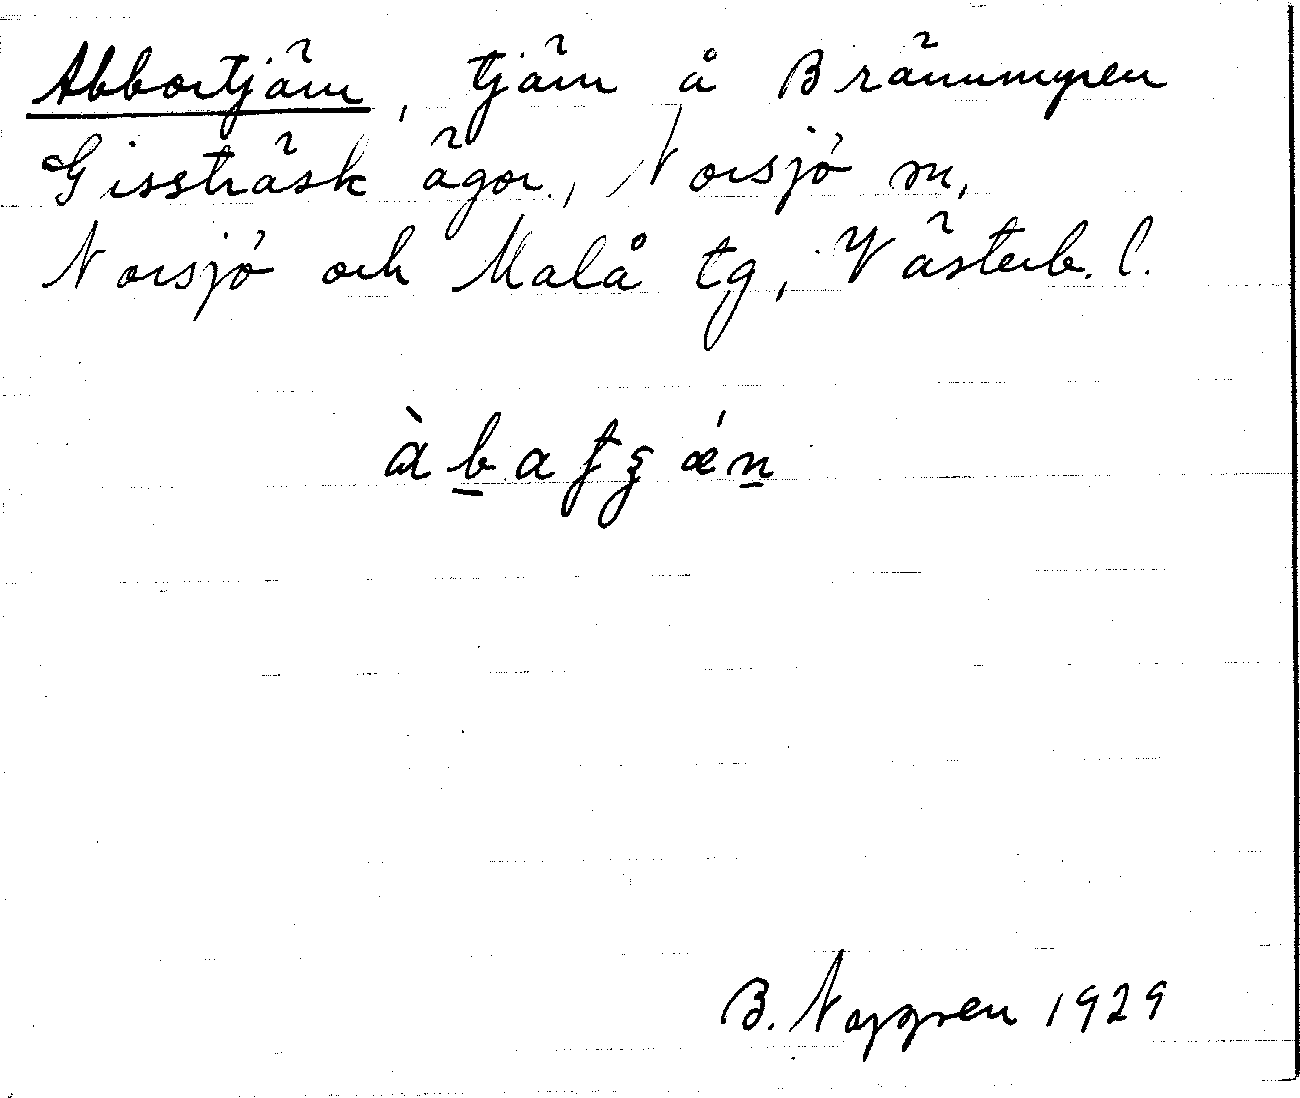 Abbortjärn, tjärn å Brännmyren
Gissträsk ägor, Norsjö sn,
Norsjö och Malå tg, Västerb. l.
B. 1929